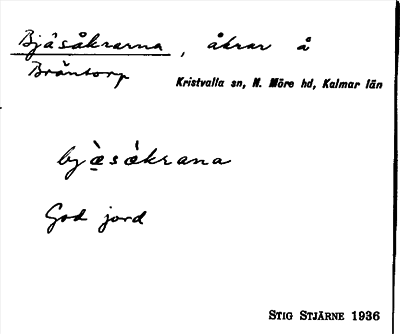 Bjäsåkrarna, åkrar å
Bräntorp
Kristvalla sn, N. Möre hd, Kalmar län
bjæ̀sákrana
God jord
STIG STJÄRNE 1936